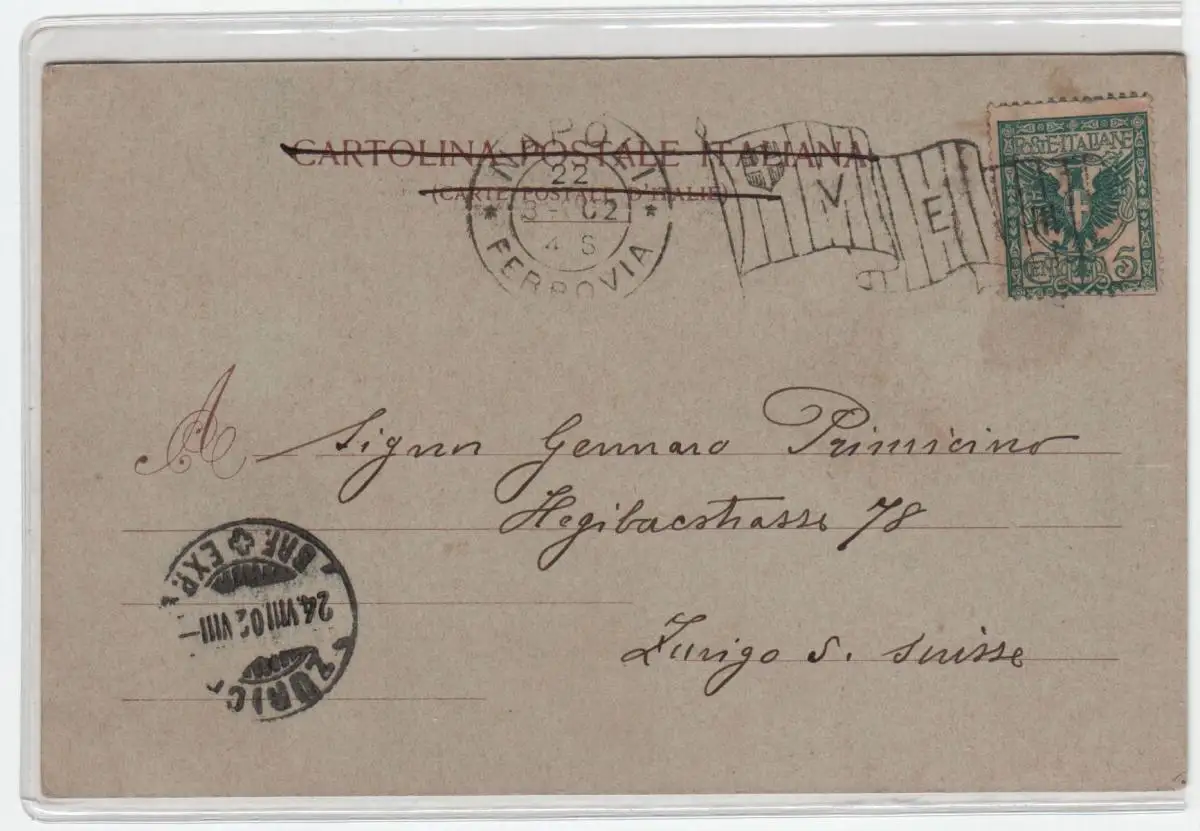 CARTOLINA POSTALE ITALIANA
(CARTE POSTALE D'ITALIE)
NAPOLI
22
8- 02
4 S
* FERROVIA *
V E
POSTE ITALIANE
CENT. 5
A Signor Gennaro Primicino
Hegibacstrasse 78
Zurigo S. Suisse
BRF. EXP.
24.VIII.02.VIII—
ZÜRIC